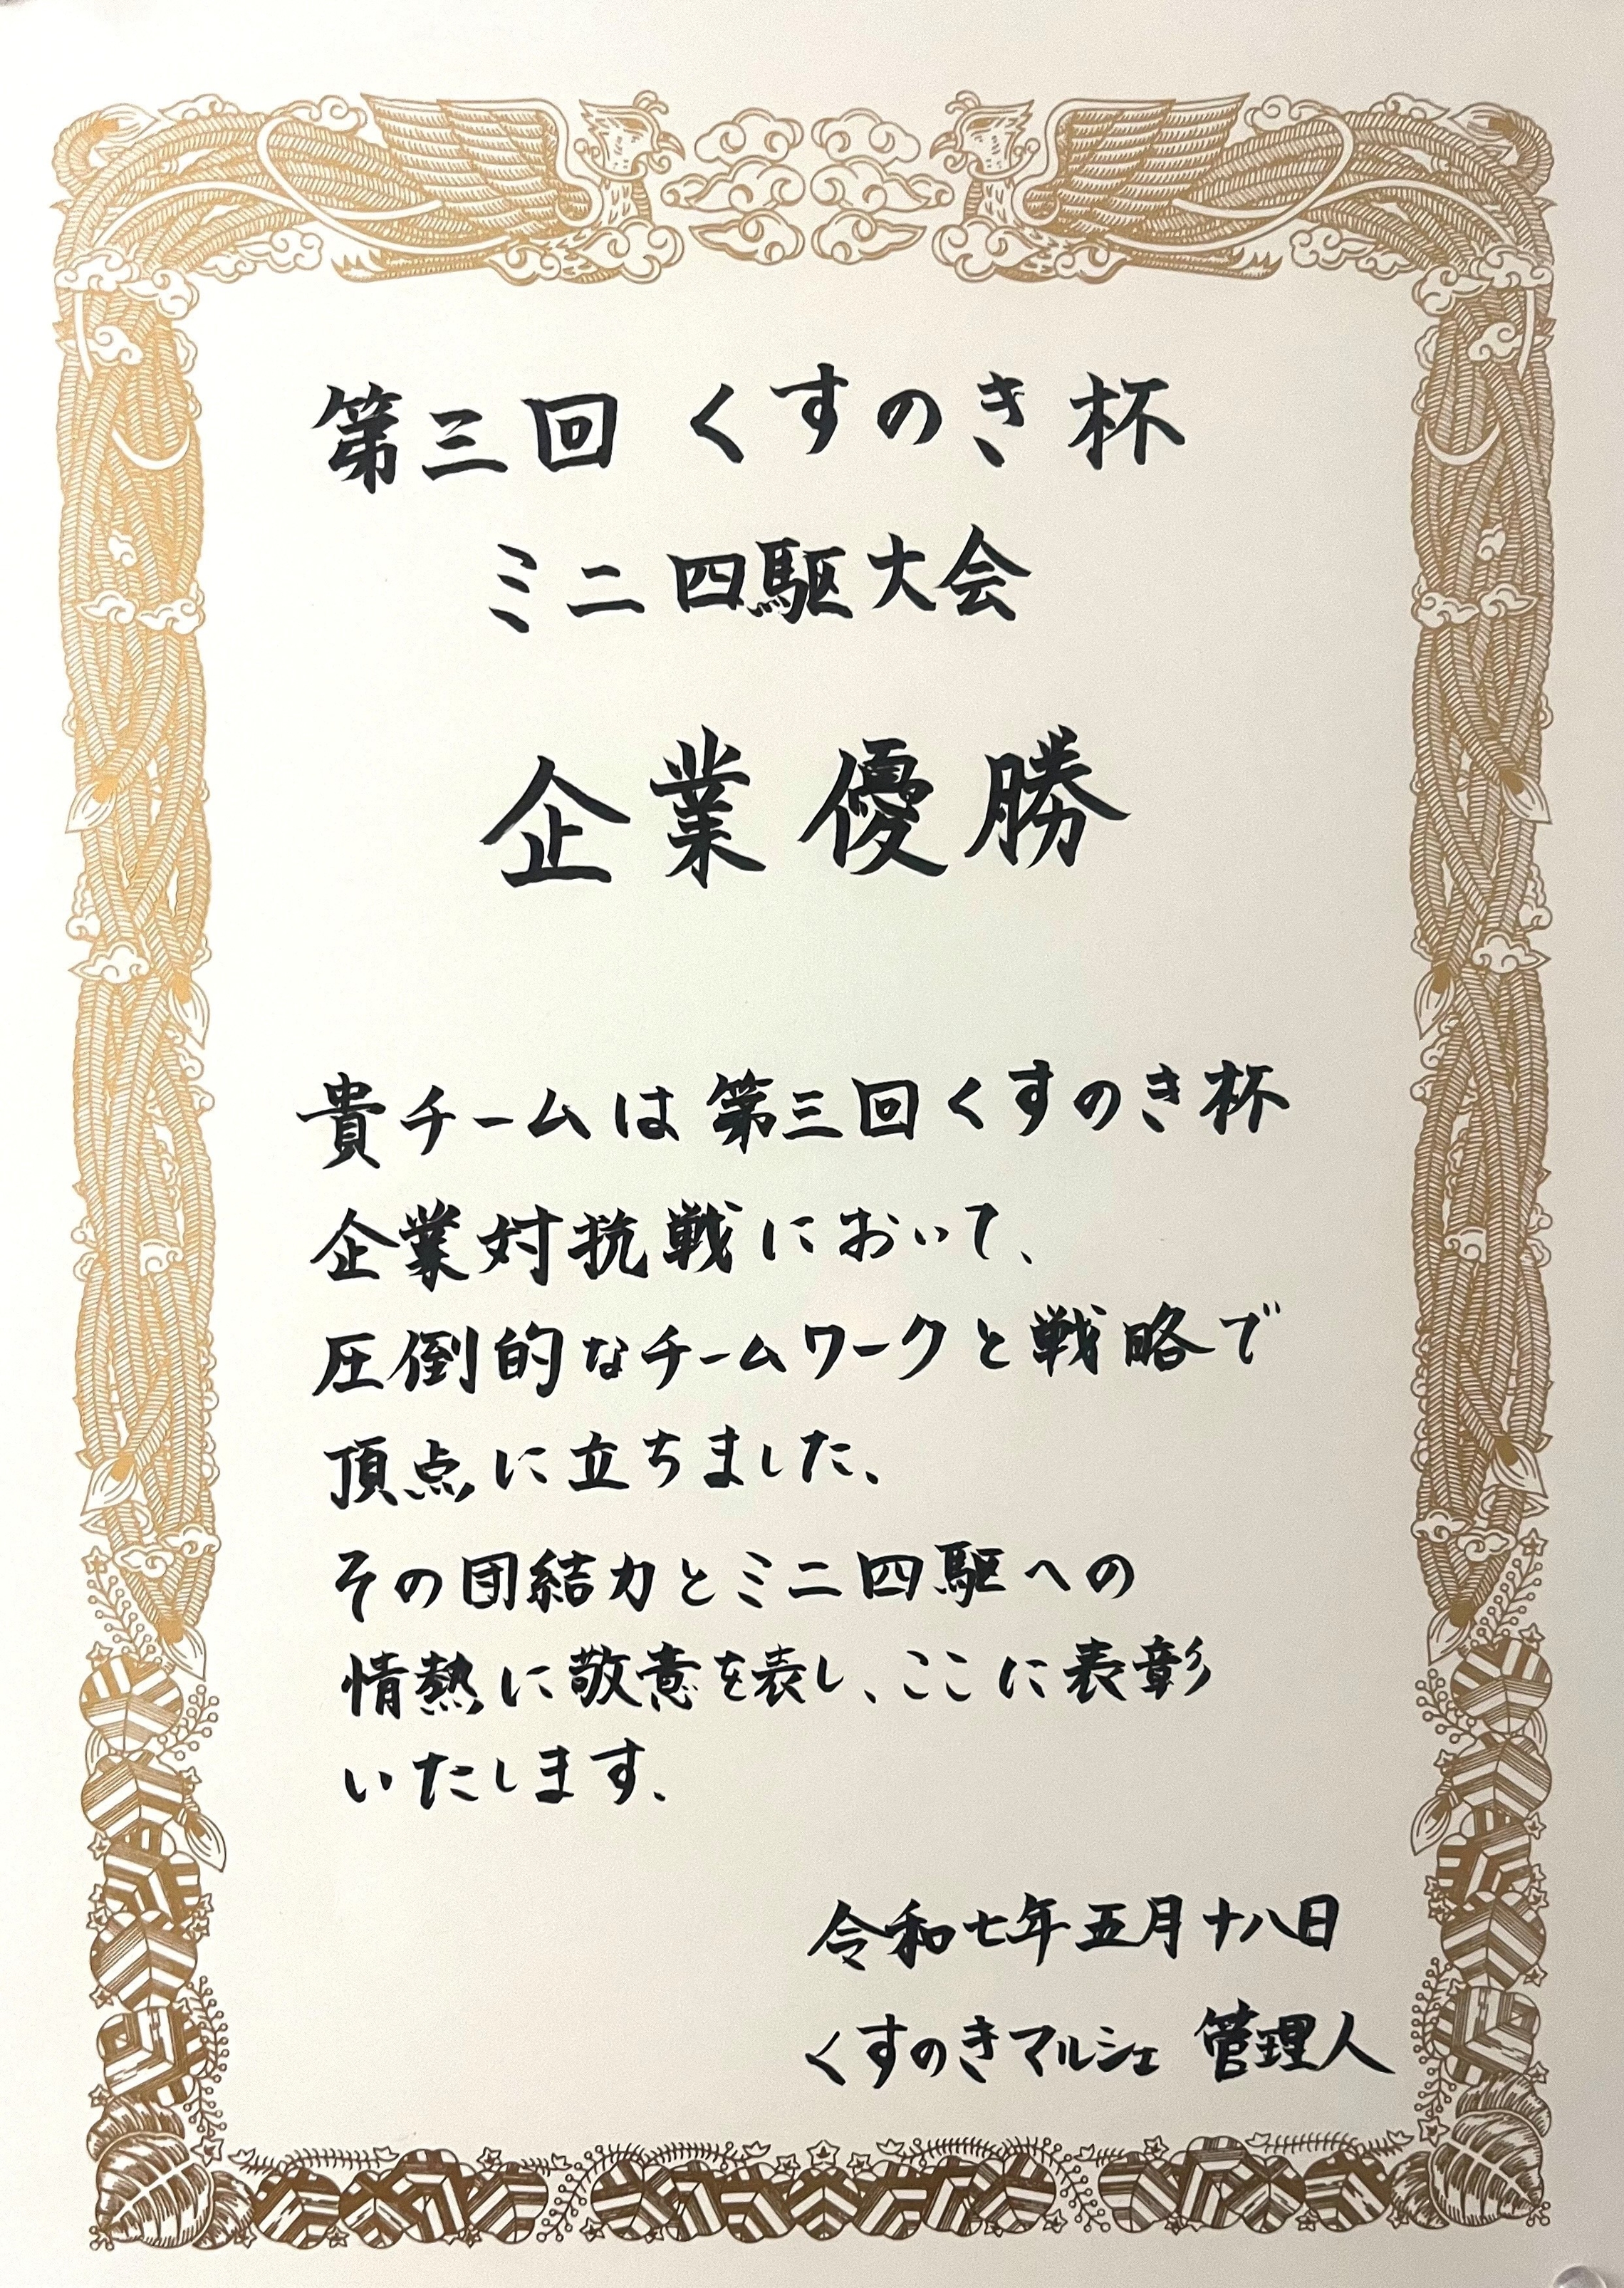 第三回 くすのき杯
ミニ四駆大会
企業優勝
貴チームは第三回くすのき杯
企業対抗戦において、
圧倒的なチームワークと戦略で
頂点に立ちました、
その団結力とミニ四駆への
情熱に敬意を表し、ここに表彰
いたします、
令和七年五月十八日
くすのきマルシェ 管理人